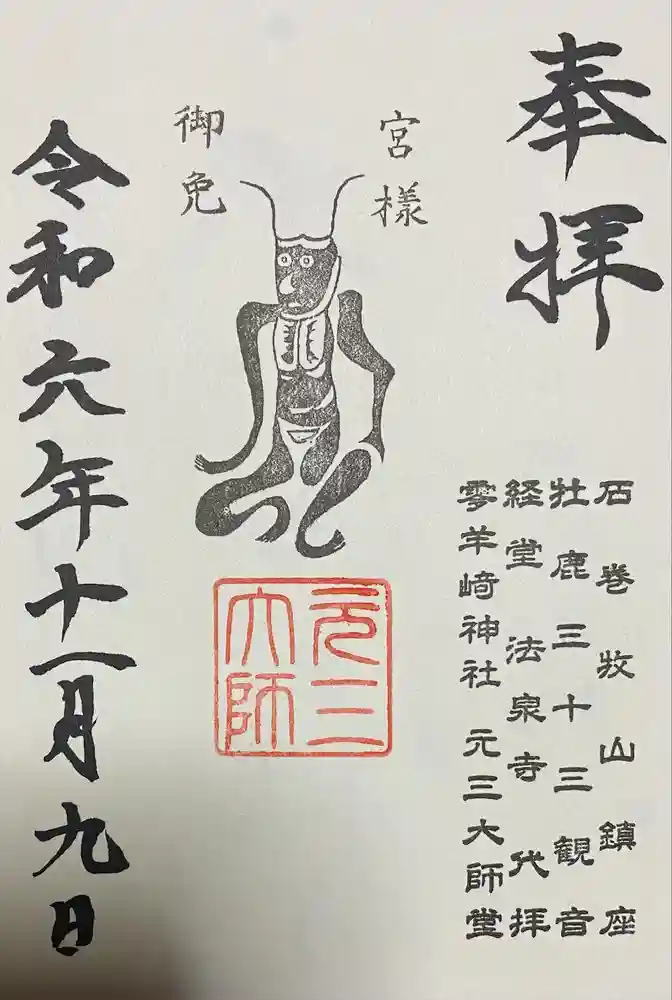 奉拝
石巻牧山鎮座
牡鹿三十三観音
経堂 法泉寺 代拝
零羊﨑神社 元三大師堂
宮様
御免
元三
大師
令和六年十一月九日